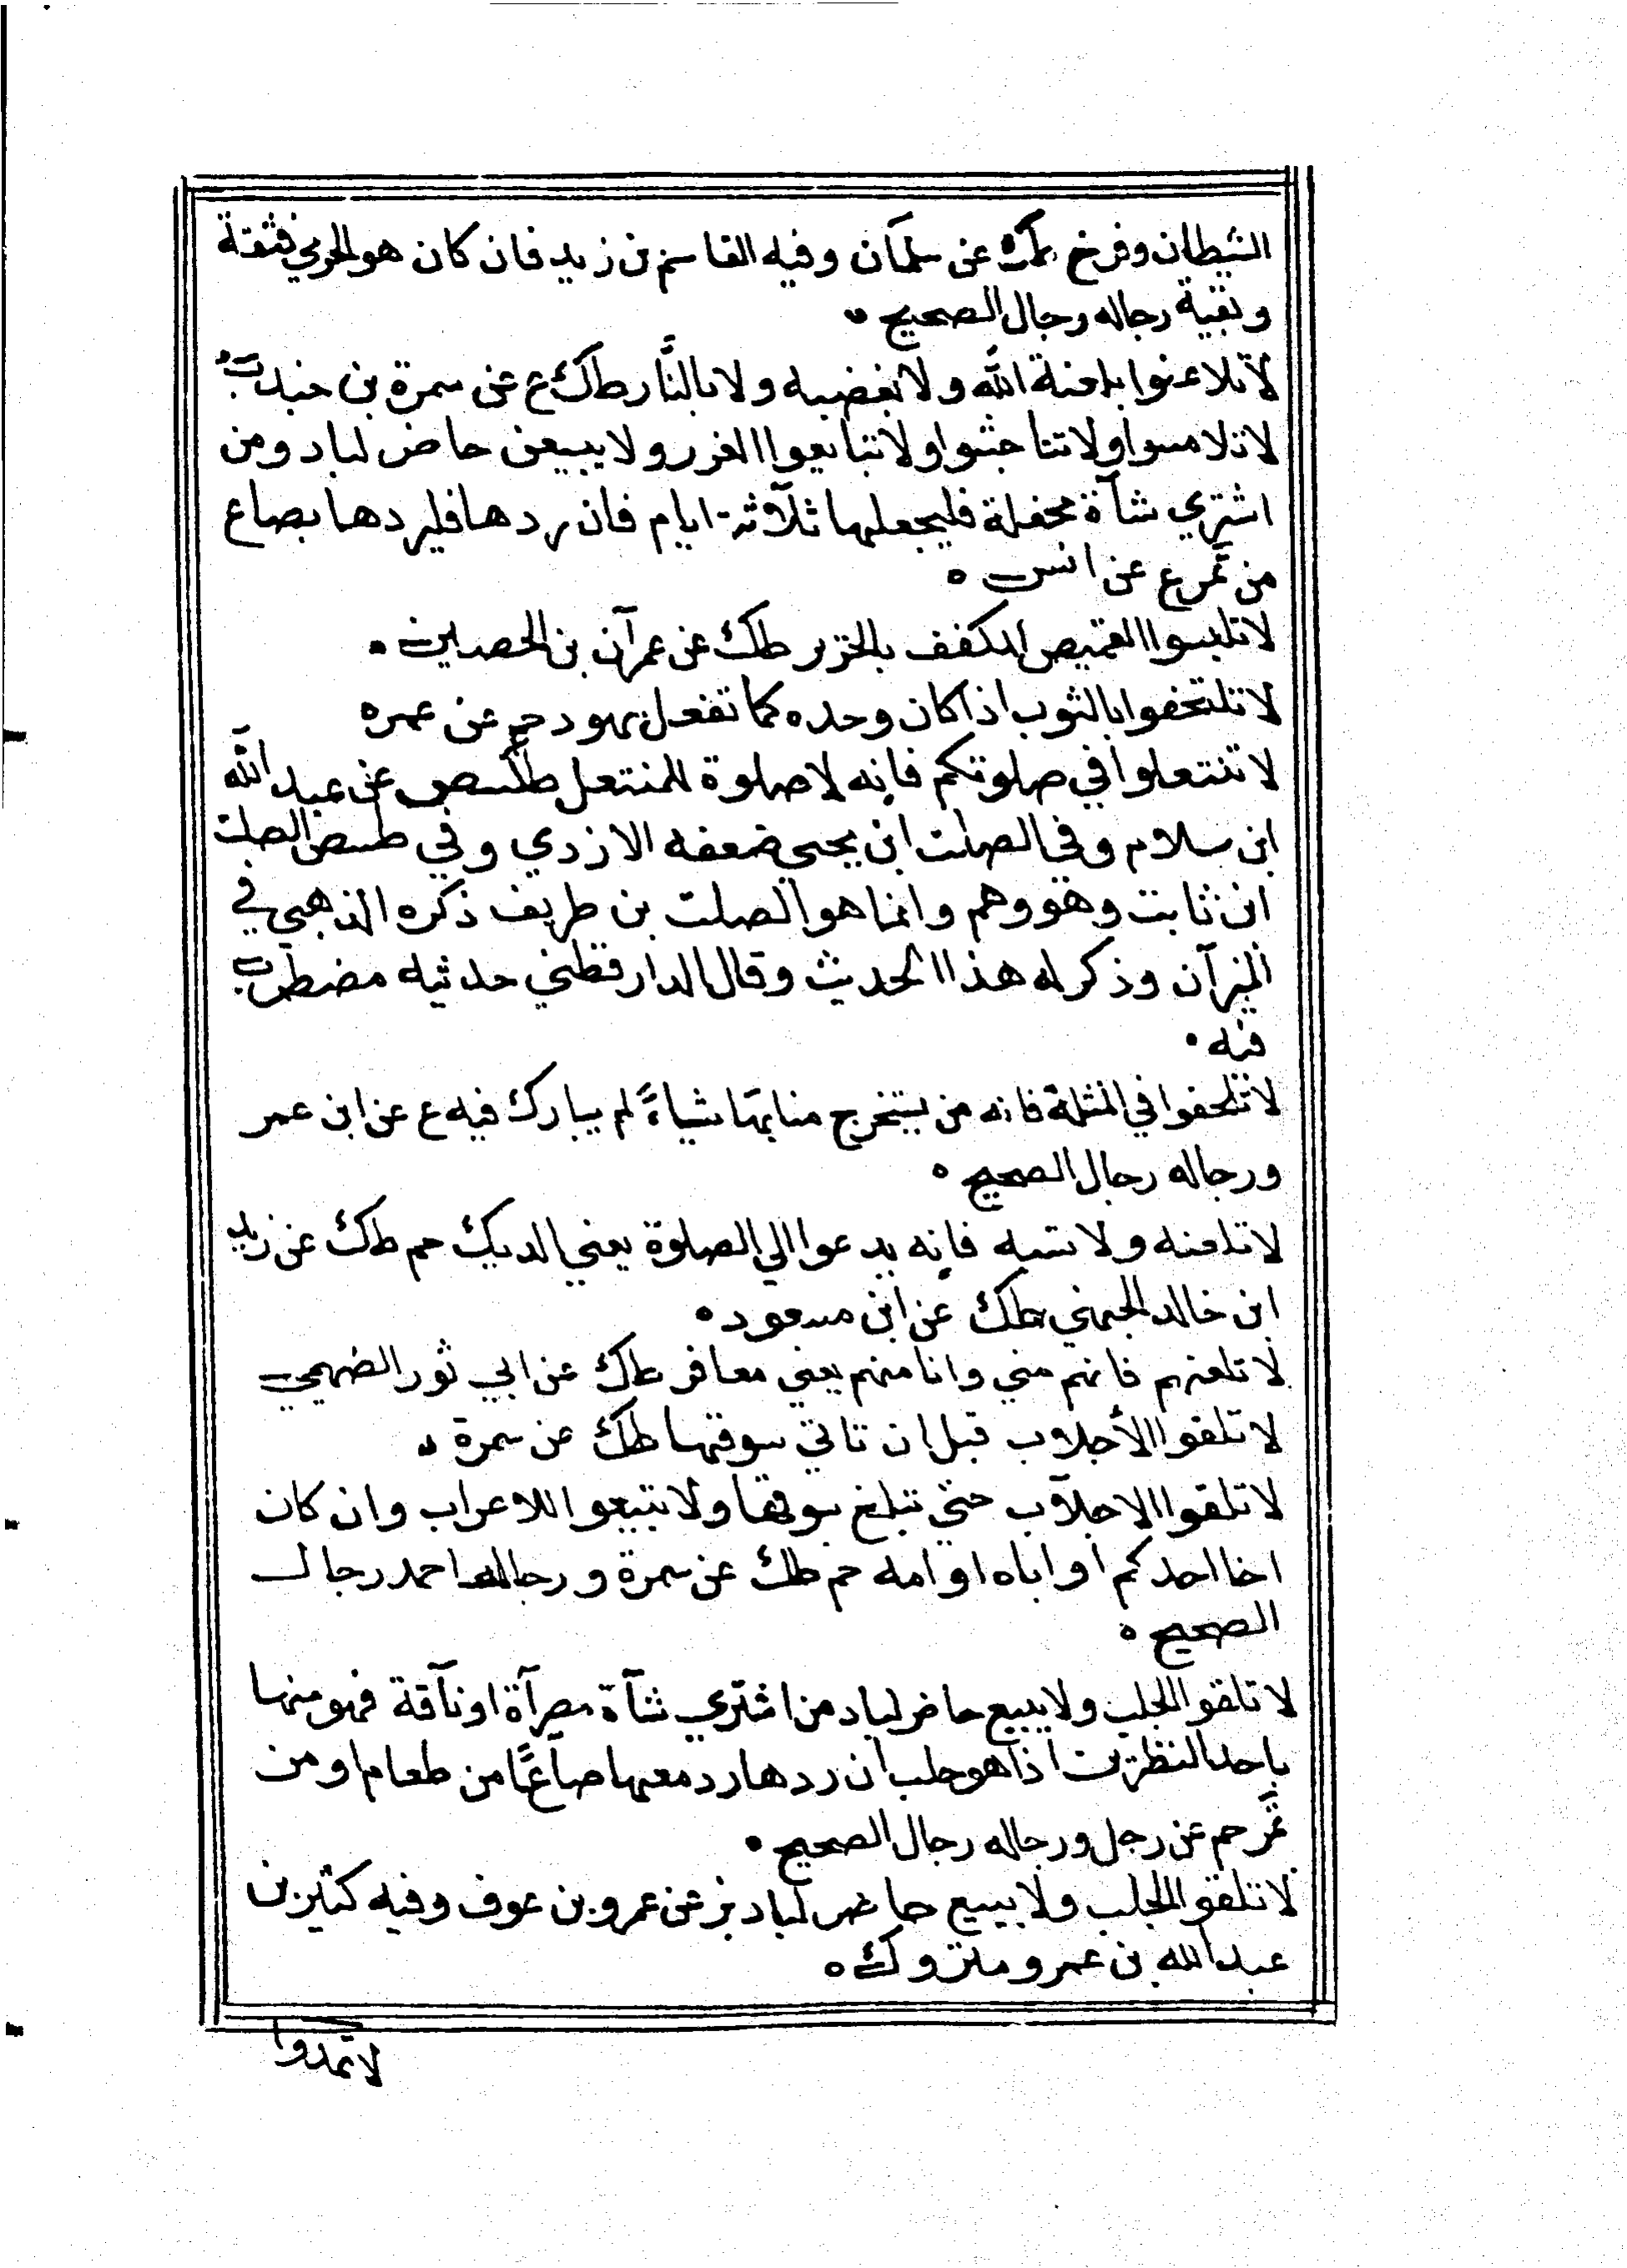 الشيطان وفرخ طك عن سلمان وفيه القاسم بن زيد فان كان هو الجرمي فثقة
وبقية رجاله رجال الصحيح ه
لاتلاعنوا بلعنة الله ولا بغضبه ولا بالنار طك ع عن سمرة بن جندب
لا تلامسوا ولا تناجشوا ولا تبايعوا الغرر ولا يبيعن حاضر لباد ومن
اشتري شآة محفلة فليحعلبها ثلآثة ايام فان ردها فليردها بصاع
من تمر ع عن انس ه
لا تلبسوا القميص المكفف بالحرير طك عن عمرآن بن الحصين ه
لا تلتحفوا بالثوب اذا كان وحده كما تفعل يهود حم عن عمره
لا تنتعلوا في صلوتكم فانه لا صلوة للمنتعل طكسص عن عبد الله
ابن سلام وفي الصلت ابن يحيي ضعفه الازدي وفي طسص الصلت
ابن ثابت وهو وهم وانما هو الصلت بن طريف ذكره الذهبي في
الميزآن وذكر له هذا الحديث وقال الدارقطني حدثيه مضطرب
فيه ه
لا تلحفوا في المثلة فانه من يستخرج منا بها شياءً لم يبارك فيه ع عن ابن عمر
ورجاله رجال الصحيح ه
لا تلعنه ولا تسبه فانه يدعوا الي الصلوة يعني الديك حم طك عن زيد
ابن خالد الجهني طك عن ابن مسعود ه
لا تلعنهم فانهم مني وانا منهم يعني معافر طك عن ابي ثور الفهمي
لا تلقوا الأجلاب قبل ان تاتي سوقها طك عن سمرة ه
لا تلقوا الاجلآب حتي تبلغ سوقها ولا تبيعوا للاعراب وان كان
اخا احدكم او اباه او امه حم طك عن سمرة ورجاله احمد رجال
الصحيح ه
لا تلقوا الجلب ولا يبيع حاضر لباد من اشتري شآة مصرآة او نآقة فهو منها
باحد النظرين اذا هو حلب ان ردها رد معها صآعًا من طعام او من
تمر حم عن رجل ورجاله رجال الصحيح ه
لا تلقوا الجلب ولا يبيع حاضر لباد بز عن عمرو بن عوف وفيه كثير بن
عبد الله بن عمرو متروك ه
لا تمدوا